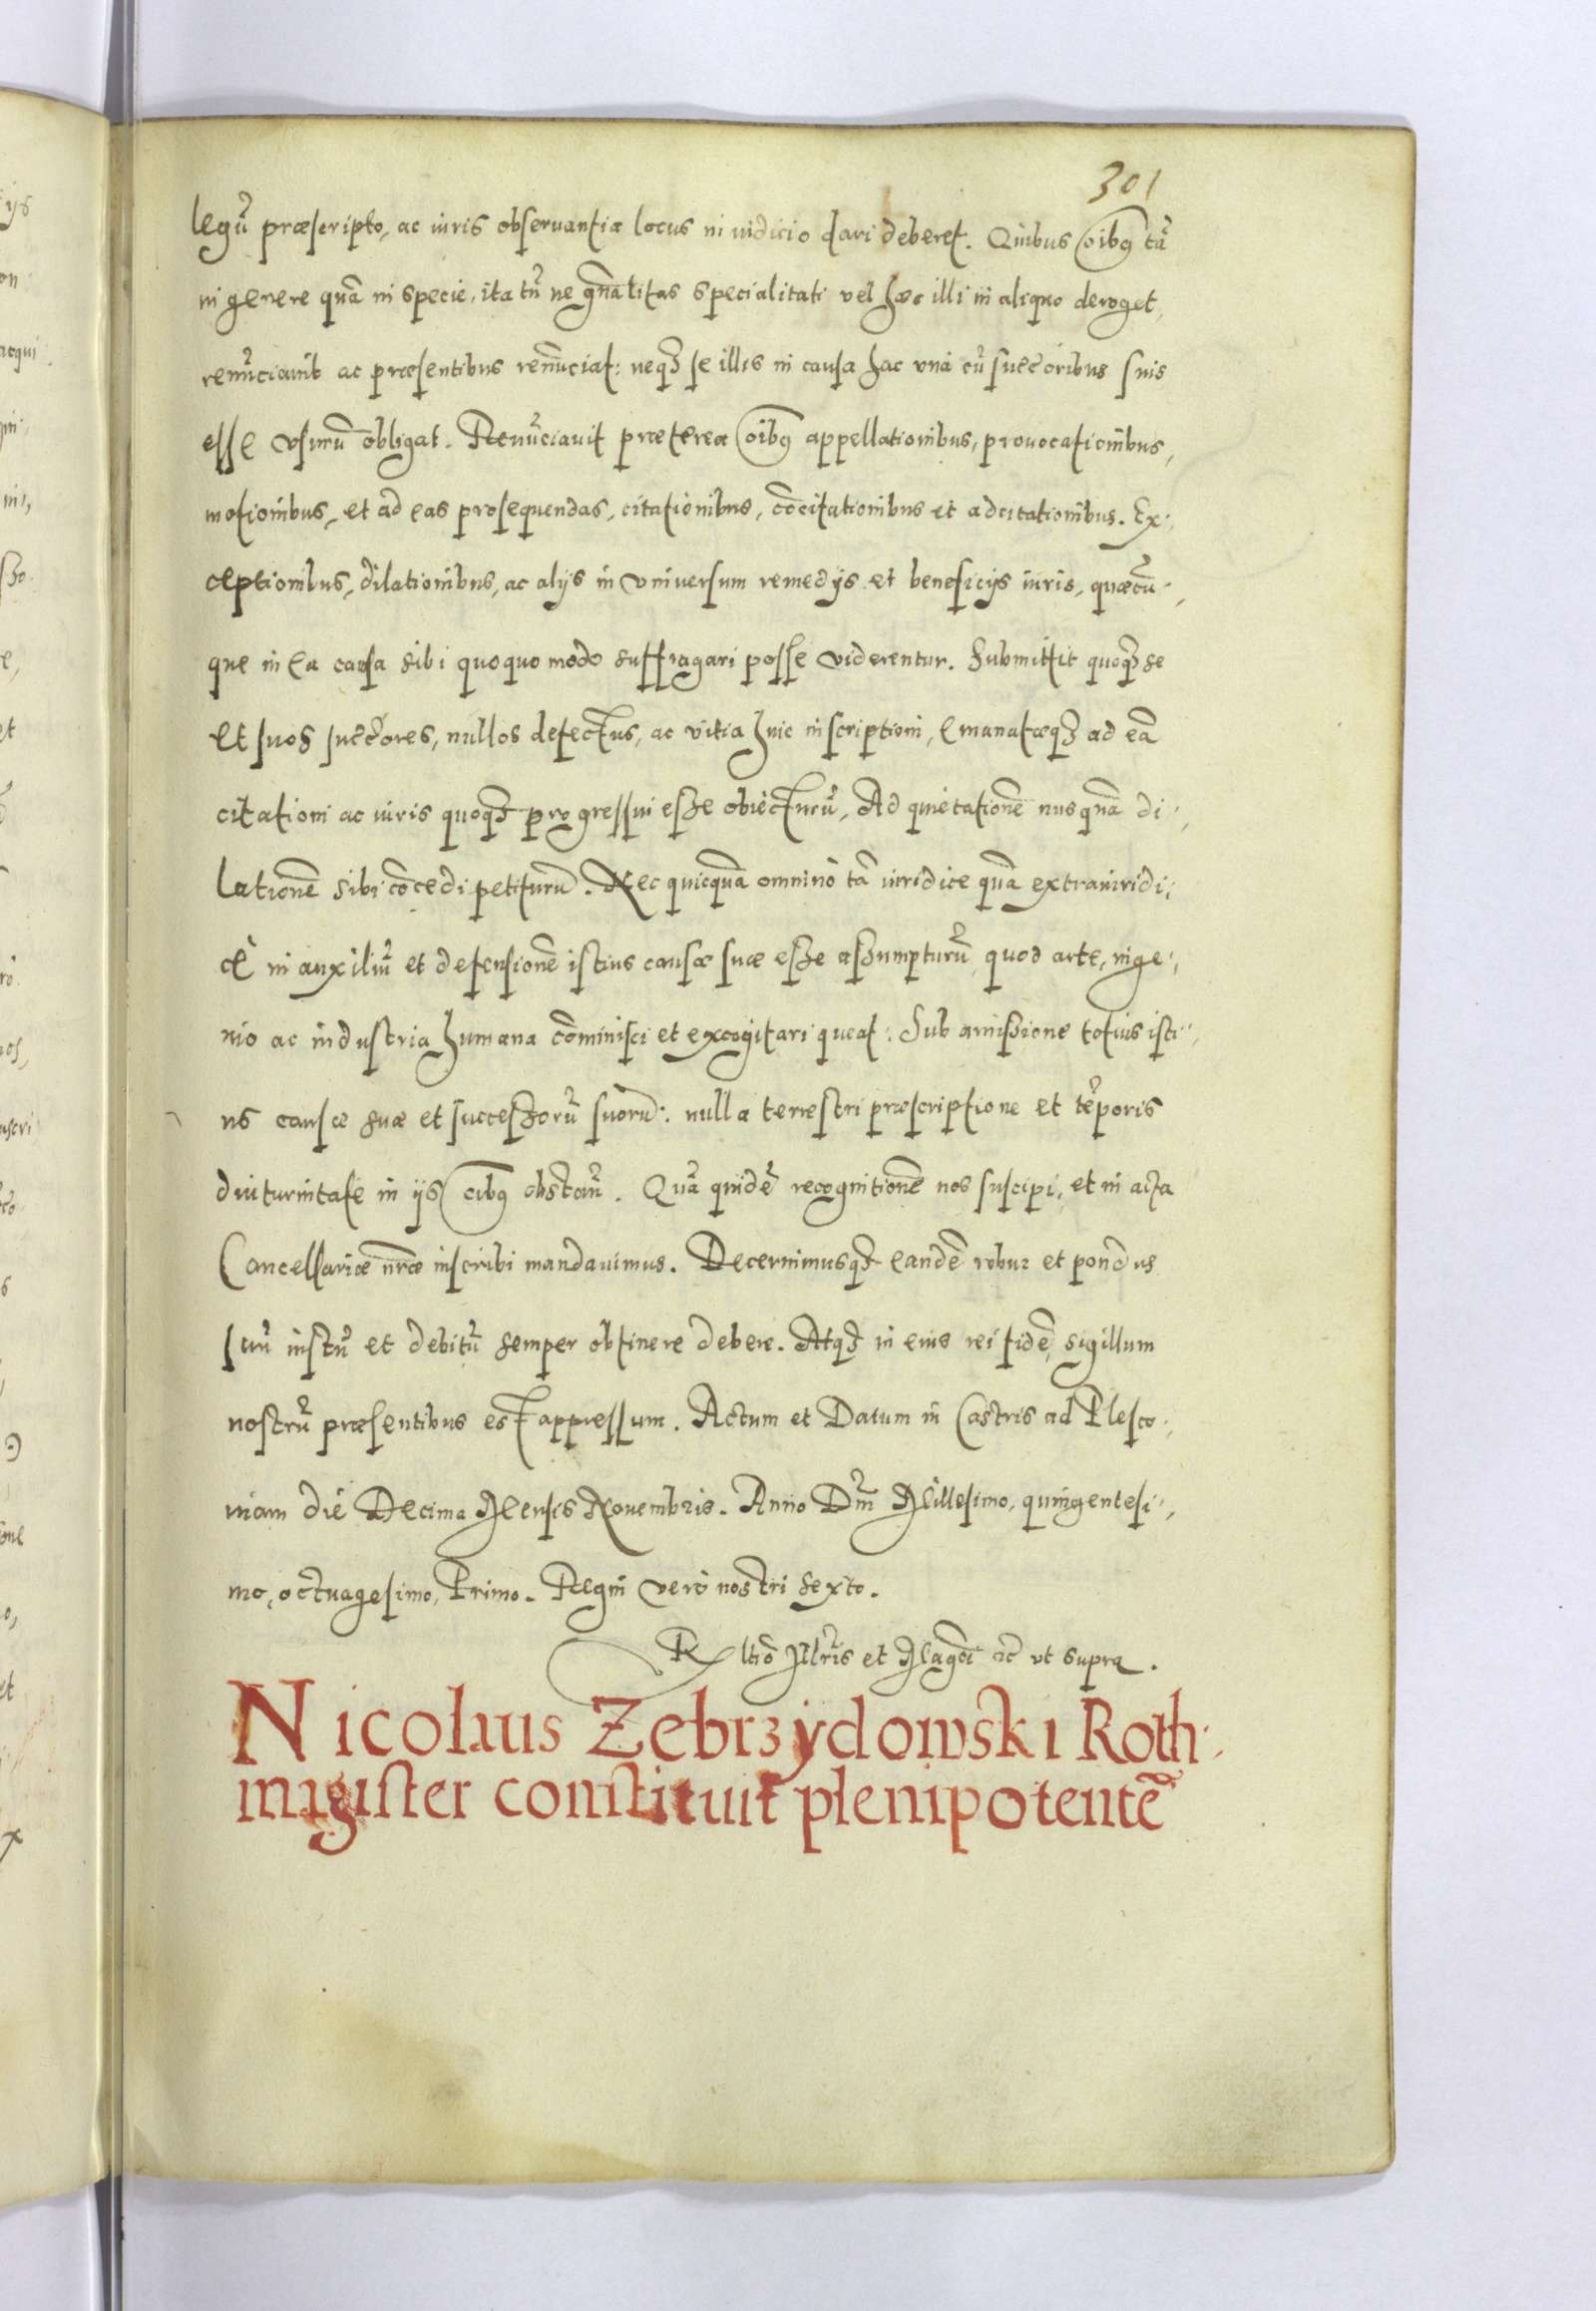 301
legũ præscripto, ac iuris obseruantiæ locus in iudicio dari deberet. Quibus oĩbꝫ tã
in genere quã in specie, ita tñ ne gñalitas specialitati vel hæc illi in aliquo deroget,
renũciauit ac præsentibus renũciat: neqꝫ se illis in causa hac vnà cũ succ̃oribus suis
esse vsurũ obligat. Renũciauit præterea oĩbꝫ appellationibus, prouocationibus,
motionibus, et ad eas prosequendas, citationibus, cõcitationibus et adcitationibus. Ex-
ceptionibus, dilationibus, ac alijs in vniuersum remedijs et beneficijs iuris, quæcũ-
que in ea causa sibi quoquo modo suffragari posse viderentur. Submittit quoqꝫ se
et suos succ̃ores, nullos defectus, ac vitia huic inscriptioni, emanatæqꝫ ad eã
citationi ac iuris quoqꝫ progressui esse obiecturũ, Ad quietationẽ nusquã di-
lationẽ sibi cõcedi petiturũ. Nec quicquã omninò tã iuridice quã extraiuridi-
cè in auxiliũ et defensionẽ istius causæ suæ esse assumpturũ, quod arte, inge-
nio ac industria humana cõminisci et excogitari queat: Sub amissione totius isti-
us causæ suæ et successorũ suorũ: nulla terrestri præscriptione et tẽporis
diuturnitate in ijs oĩbꝫ obstãn̄. Quã quidẽ recognitionẽ nos suscipi, et in acta
Cancellariæ nr̃æ inscribi mandauimus. Decernimusqꝫ eandẽ robur et pondus
suũ iustũ et debitũ semper obtinere debere. Atqꝫ in eius rei fidẽ, sigillum
nostrũ præsentibus est appressum. Actum et Datum in Castris ad Plesco-
uiam die Decima Mensis Nouembris. Anno Dñi Millesimo, quingentesi-
mo, octuagesimo, Primo. Regni verò nostri sexto.
Rltiõ Illr̃is et Magc̃i ꝛc̃ vt supra.
Nicolaus Zebrzydowski Roth-
magister constituit plenipotentẽ